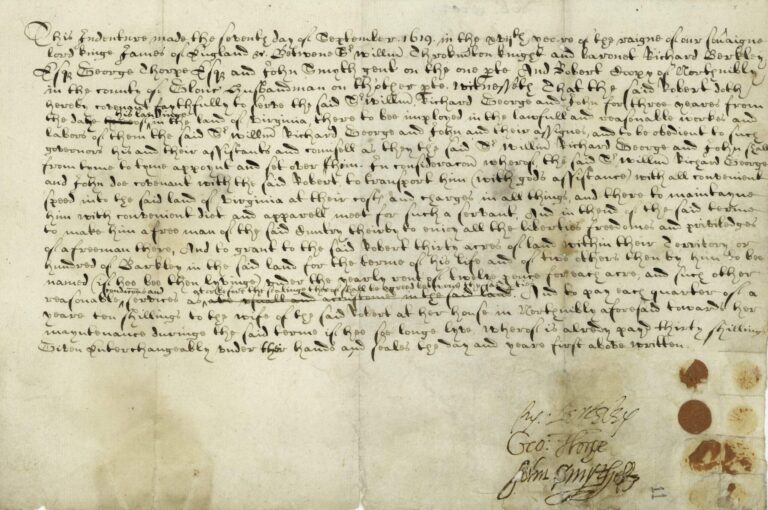 This Indenture made the seventh day of September 1619. in the xvijth yeare of the raigne of our sov'aigne
lord kinge James of England &c. Betwene Sr Willm Throkmorton knight and baronet Richard Berkley
Esqr George Thorpe Esqr and John Smyth gent on the one pte. And Robert Coopy of Northnibly
in the county of Glouc husbandman on thother pte. Witnesseth That the said Robert doth
hereby covenant faithfully to serve the said Sr Willm Richard George and John for three yeares from
the daye of his landinge in the land of Virginia, there to bee imployed in the lawfull and reasonable workes and
labors of them the said Sr Willm Richard George and John and their assignes, and to be obedient to such
governors his and their assistants and counsell as they the said Sr Willm Richard George and John shall
from tyme to tyme appoynt and set over him. In consideracon wherof the said Sr Willm Richard George
and John doe covenant with the said Robert to transport him (with gods assistance) with all convenient
speed into the said land of Virginia at their costs and charges in all things, and there to maintayne
him with convenient diet and apparell meet for such a servant, And in thend of the said terme
to make him a free man of the said Cuntry therby to enioy all the liberties freedomes and priviledges
of a freeman there, And to grant to the said Robert thirty acres of land within their Territory or
hundred of Barkley in the said land for the terme of his life and of two others then by him to bee
named (if hee bee then lyvinge) under the yearly rent of twelve pence for each acre, and such other
reasonable services as in the said land And to pay each quarter of a
yeare ten shillings to the wife of the said Robert at her house in Northnibly aforesaid towards her
mayntenance duringe the said terme if hee soe longe lyve Wherof is already payd thirty shillings
Given Enterchangeably under their hands and seales the day and yeare first above written.
Geo: Thorpe
John Smyth